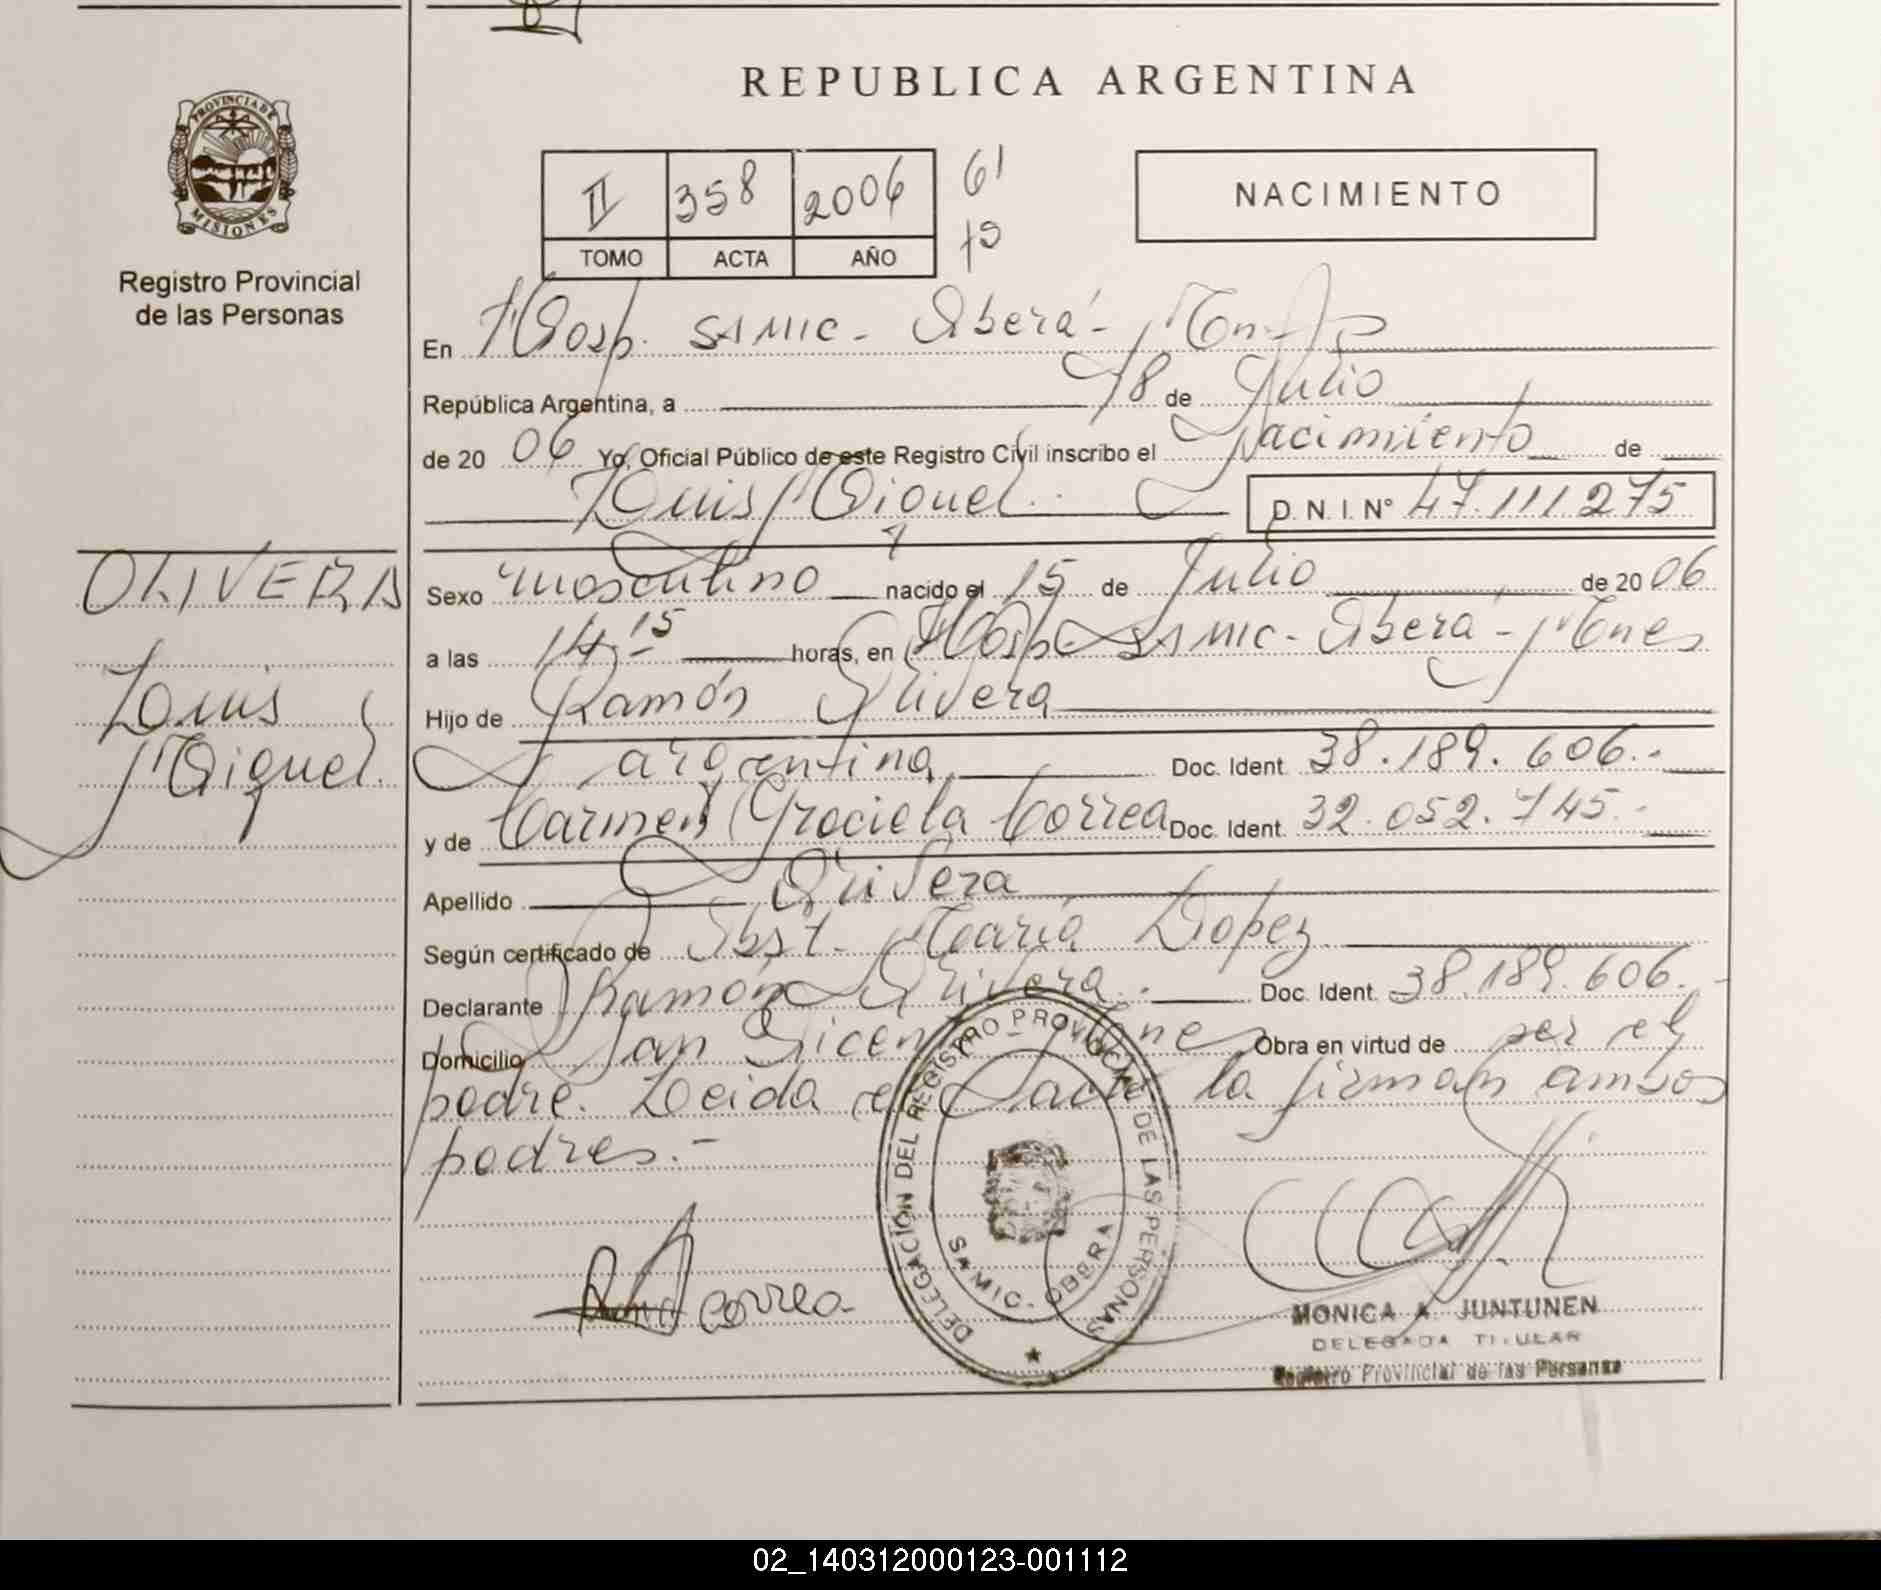 REPUBLICA ARGENTINA
PROVINCIA DE
MISIONES
Registro Provincial
de las Personas
II 358 2006 61
TOMO ACTA AÑO
NACIMIENTO
En Hosp. SAMIC - Oberá - Mnes
República Argentina, a 18 de Julio
de 2006 Yo, Oficial Público de este Registro Civil inscribo el Nacimiento de
Luis Miguel. D.N.I. Nº 47.111.275
OLIVERA
Luis
Miguel.
Sexo masculino nacido el 15 de Julio de 2006
a las 14 15 horas, en Hosp. SAMIC - Oberá - Mnes
Hijo de Ramón Olivera
argentina Doc. Ident. 38.189.606.-
y de Carmen Graciela Correa Doc. Ident. 32.052.745.-
Apellido Olivera
Según certificado de Obst. María Lopez
Declarante Ramón Olivera. Doc. Ident. 38.189.606.-
Domicilio San Vicente Mnes Obra en virtud de ser el
padre. Leida el acta la firman ambos
padres.-
DELEGACIÓN DEL REGISTRO PROVINCIAL DE LAS PERSONAS
SAMIC - OBERA
correa
MONICA A. JUNTUNEN
DELEGADA TITULAR
Registro Provincial de las Personas
02_140312000123-001112